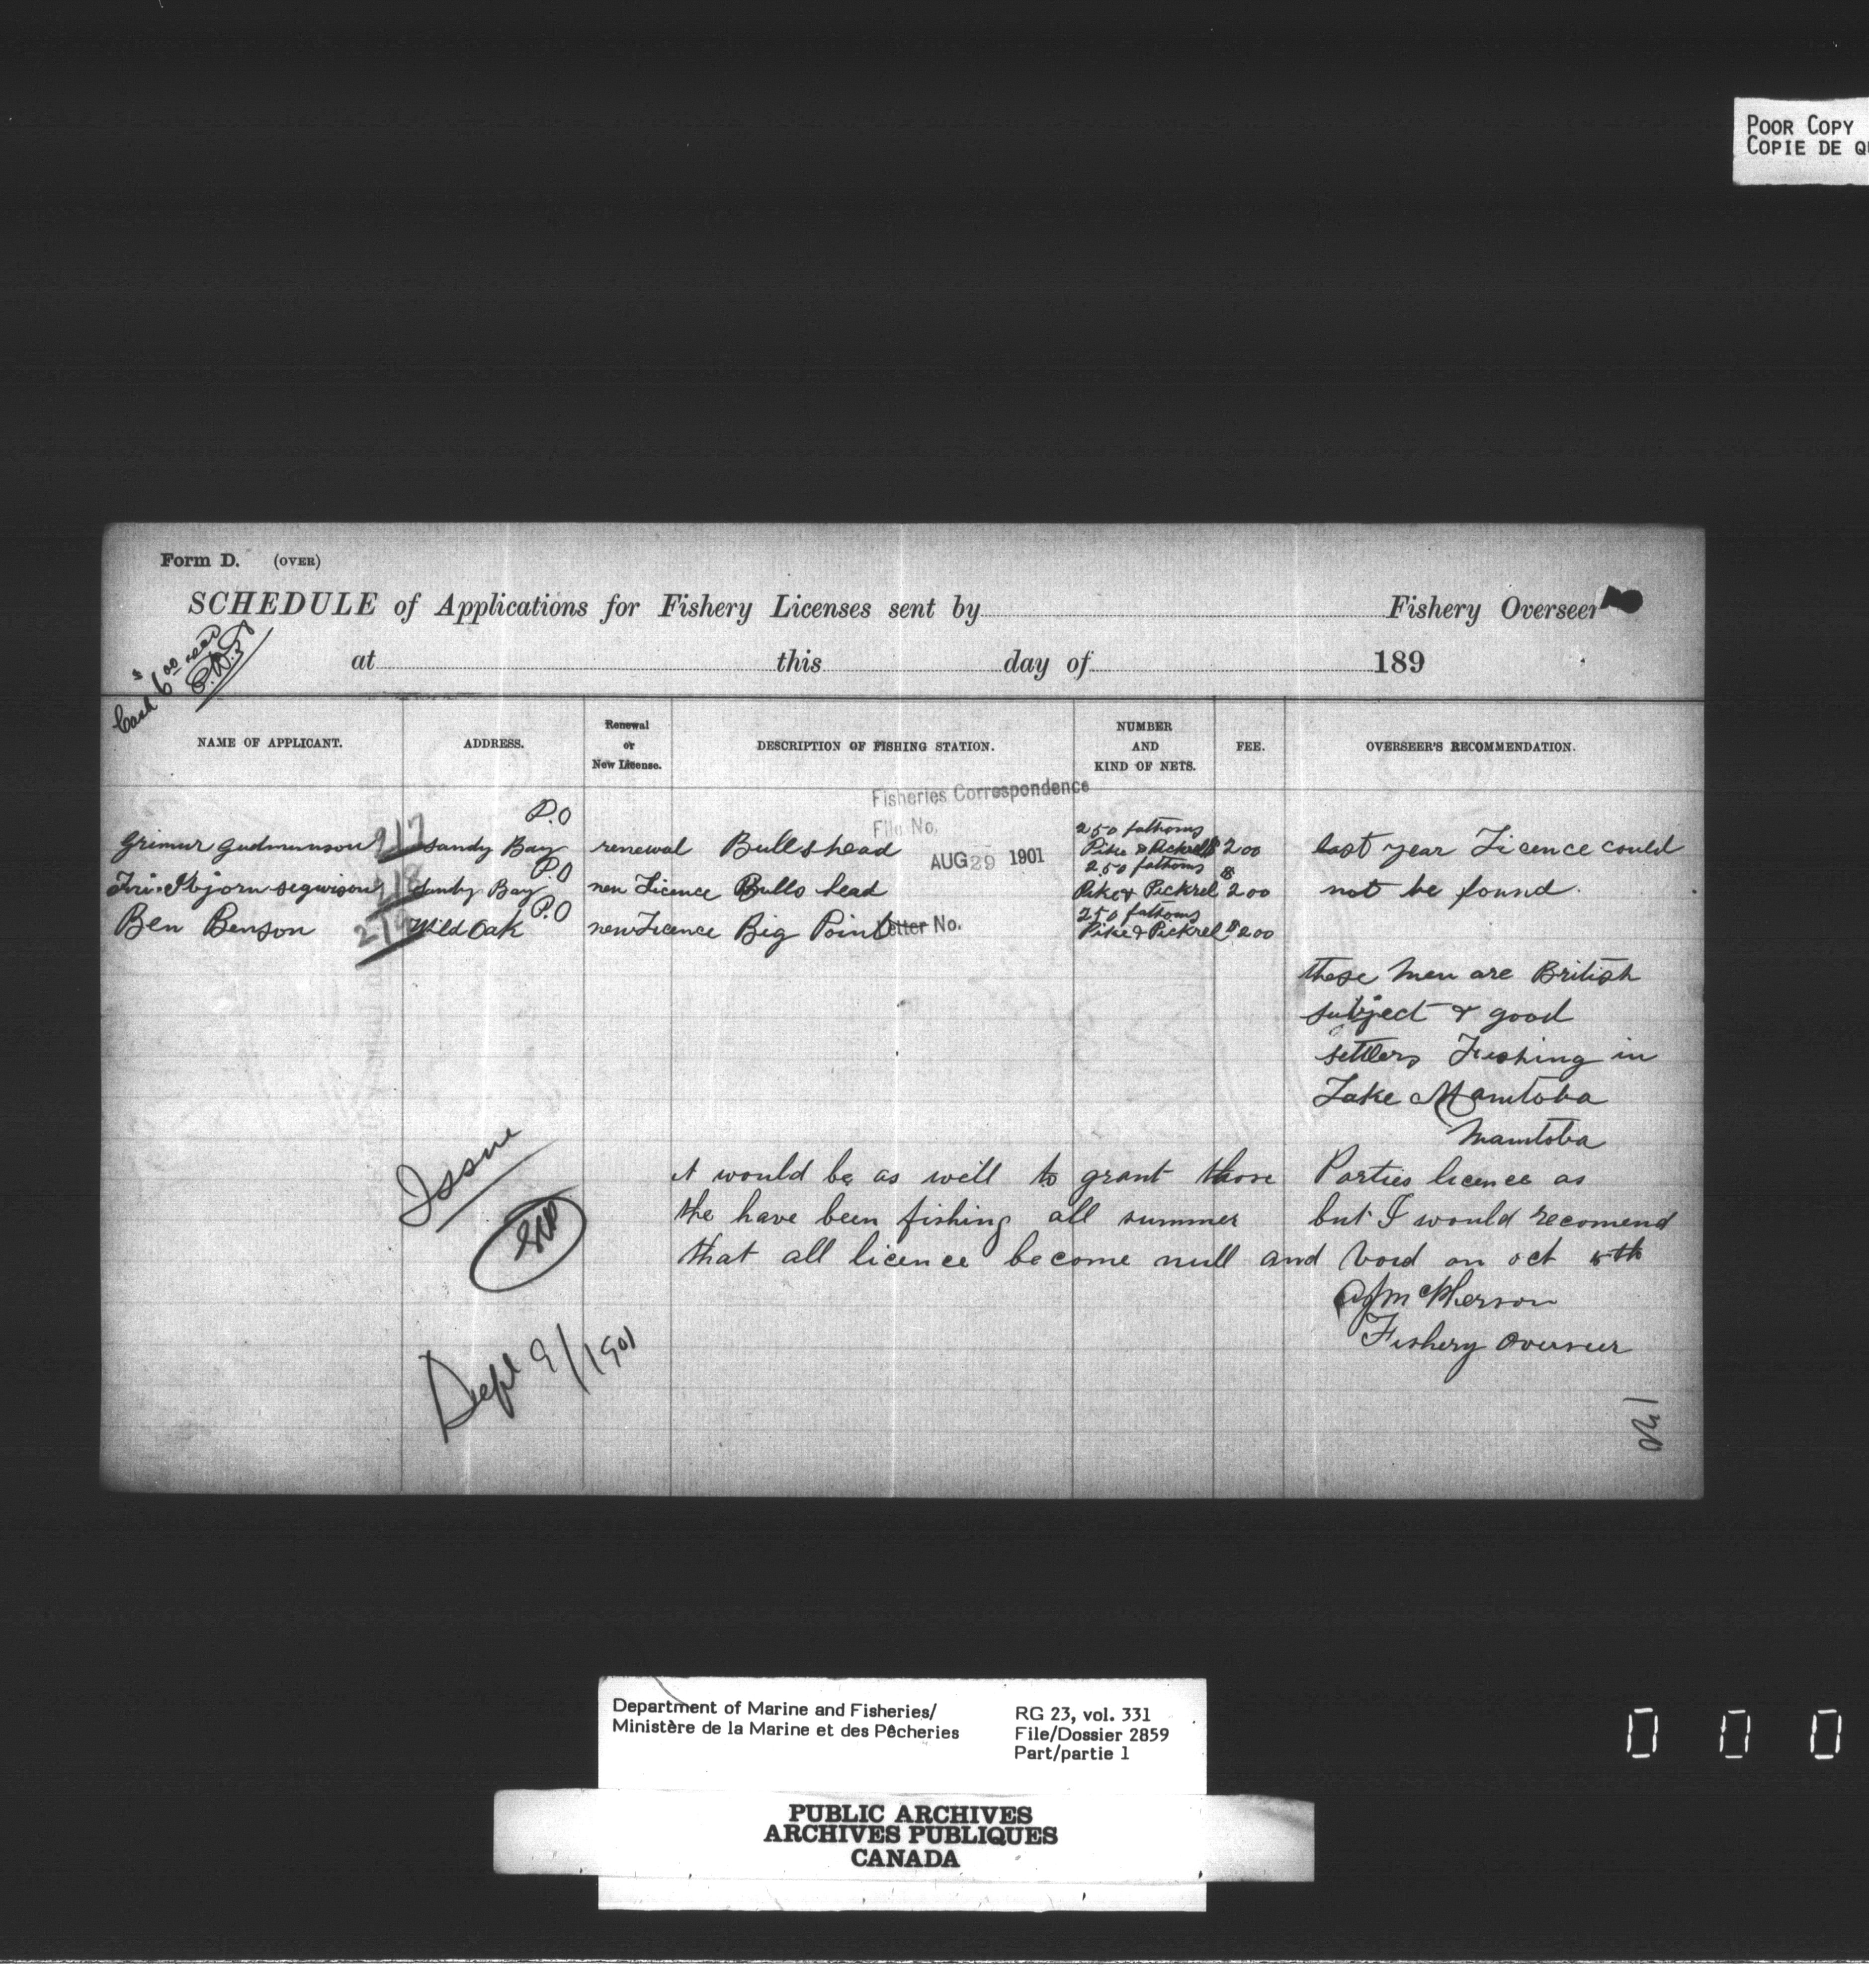 POOR COPY
COPIE DE QU
Form D. (OVER)
SCHEDULE of Applications for Fishery Licenses sent by Fishery Overseer
at this day of 189
Cash $6.00 recd
NAME OF APPLICANT. ADDRESS. Renewal or New License. DESCRIPTION OF FISHING STATION. NUMBER AND KIND OF NETS. FEE. OVERSEER'S RECOMMENDATION.
Fisheries Correspondence
File No.
AUG 29 1901
Letter No.
Grimur Gudmunson 217 Sandy Bay P.O renewal Bullshead 250 fathoms Pike & Pickrel $2 00 last year Licence could
218 Sandy Bay P.O new Licence Bulls head 250 fathoms Pike & Pickrel $2 00 not be found.
Ben Benson Wild Oak P.O new Licence Big Point 250 fathoms Pike & Pickrel $2 00
these men are British
subject & good
settlers Fishing in
Lake Manitoba
Manitoba
it would be as well to grant those Parties licence as
the have been fishing all summer but I would recomend
that all licence become null and void on oct 5th
McPherson
Fishery Overseer
Issue
Sept 9/1901
Department of Marine and Fisheries/
Ministère de la Marine et des Pêcheries
RG 23, vol. 331
File/Dossier 2859
Part/partie 1
PUBLIC ARCHIVES
ARCHIVES PUBLIQUES
CANADA
0 0 0